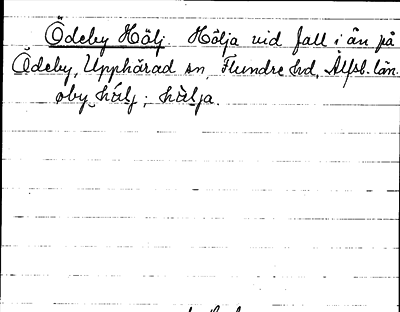 Ödeby Hölj. Hölja vid fall i ån på
Ödeby, Upphärad sn, Flundre hd, Älfsb. län.
øby hülj; hülja.